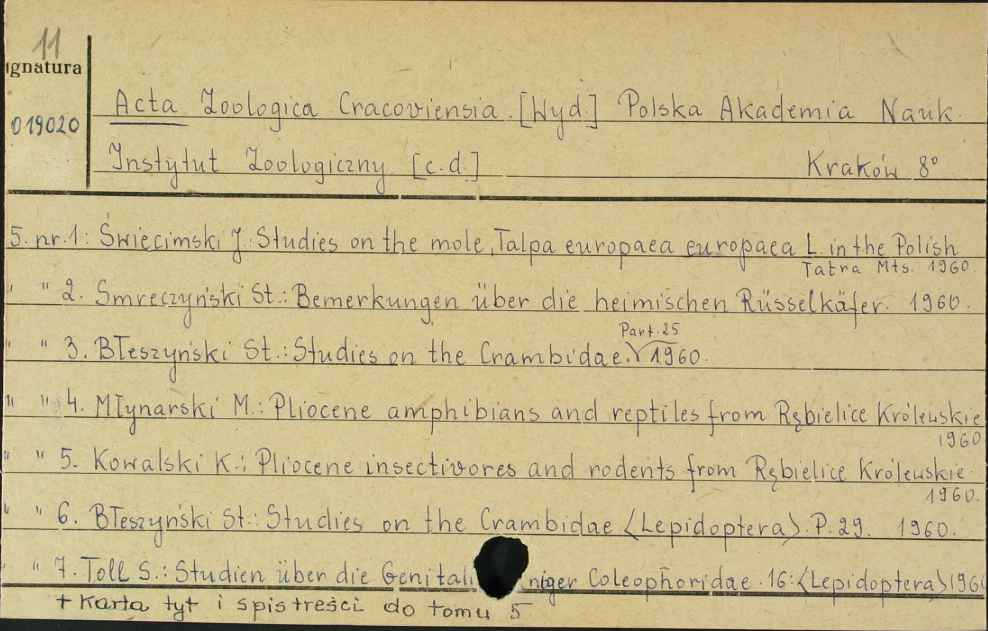 11
ignatura
019020
Acta Zoologica Cracoviensia. [Wyd.] Polska Akademia Nauk.
Instytut Zoologiczny [c.d.] Kraków 8°
5. nr. 1: Święcimski J.: Studies on the mole, Talpa europaea europaea L. in the Polish
Tatra Mts. 1960.
" " 2. Smreczyński St.: Bemerkungen über die heimischen Rüsselkäfer. 1960.
Part. 25
" " 3. Błeszyński St.: Studies on the Crambidae. 1960.
" " 4. Młynarski M.: Pliocene amphibians and reptiles from Rębielice Królewskie
1960
" " 5. Kowalski K.: Pliocene insectivores and rodents from Rębielice Królewskie.
1960.
" " 6. Błeszyński St.: Studies on the Crambidae <Lepidoptera>. P. 29. 1960.
" " 7. Toll S.: Studien über die Genitali niger Coleophoridae. 16: <Lepidoptera> 1960
+ karta tyt i spis treści do tomu 5